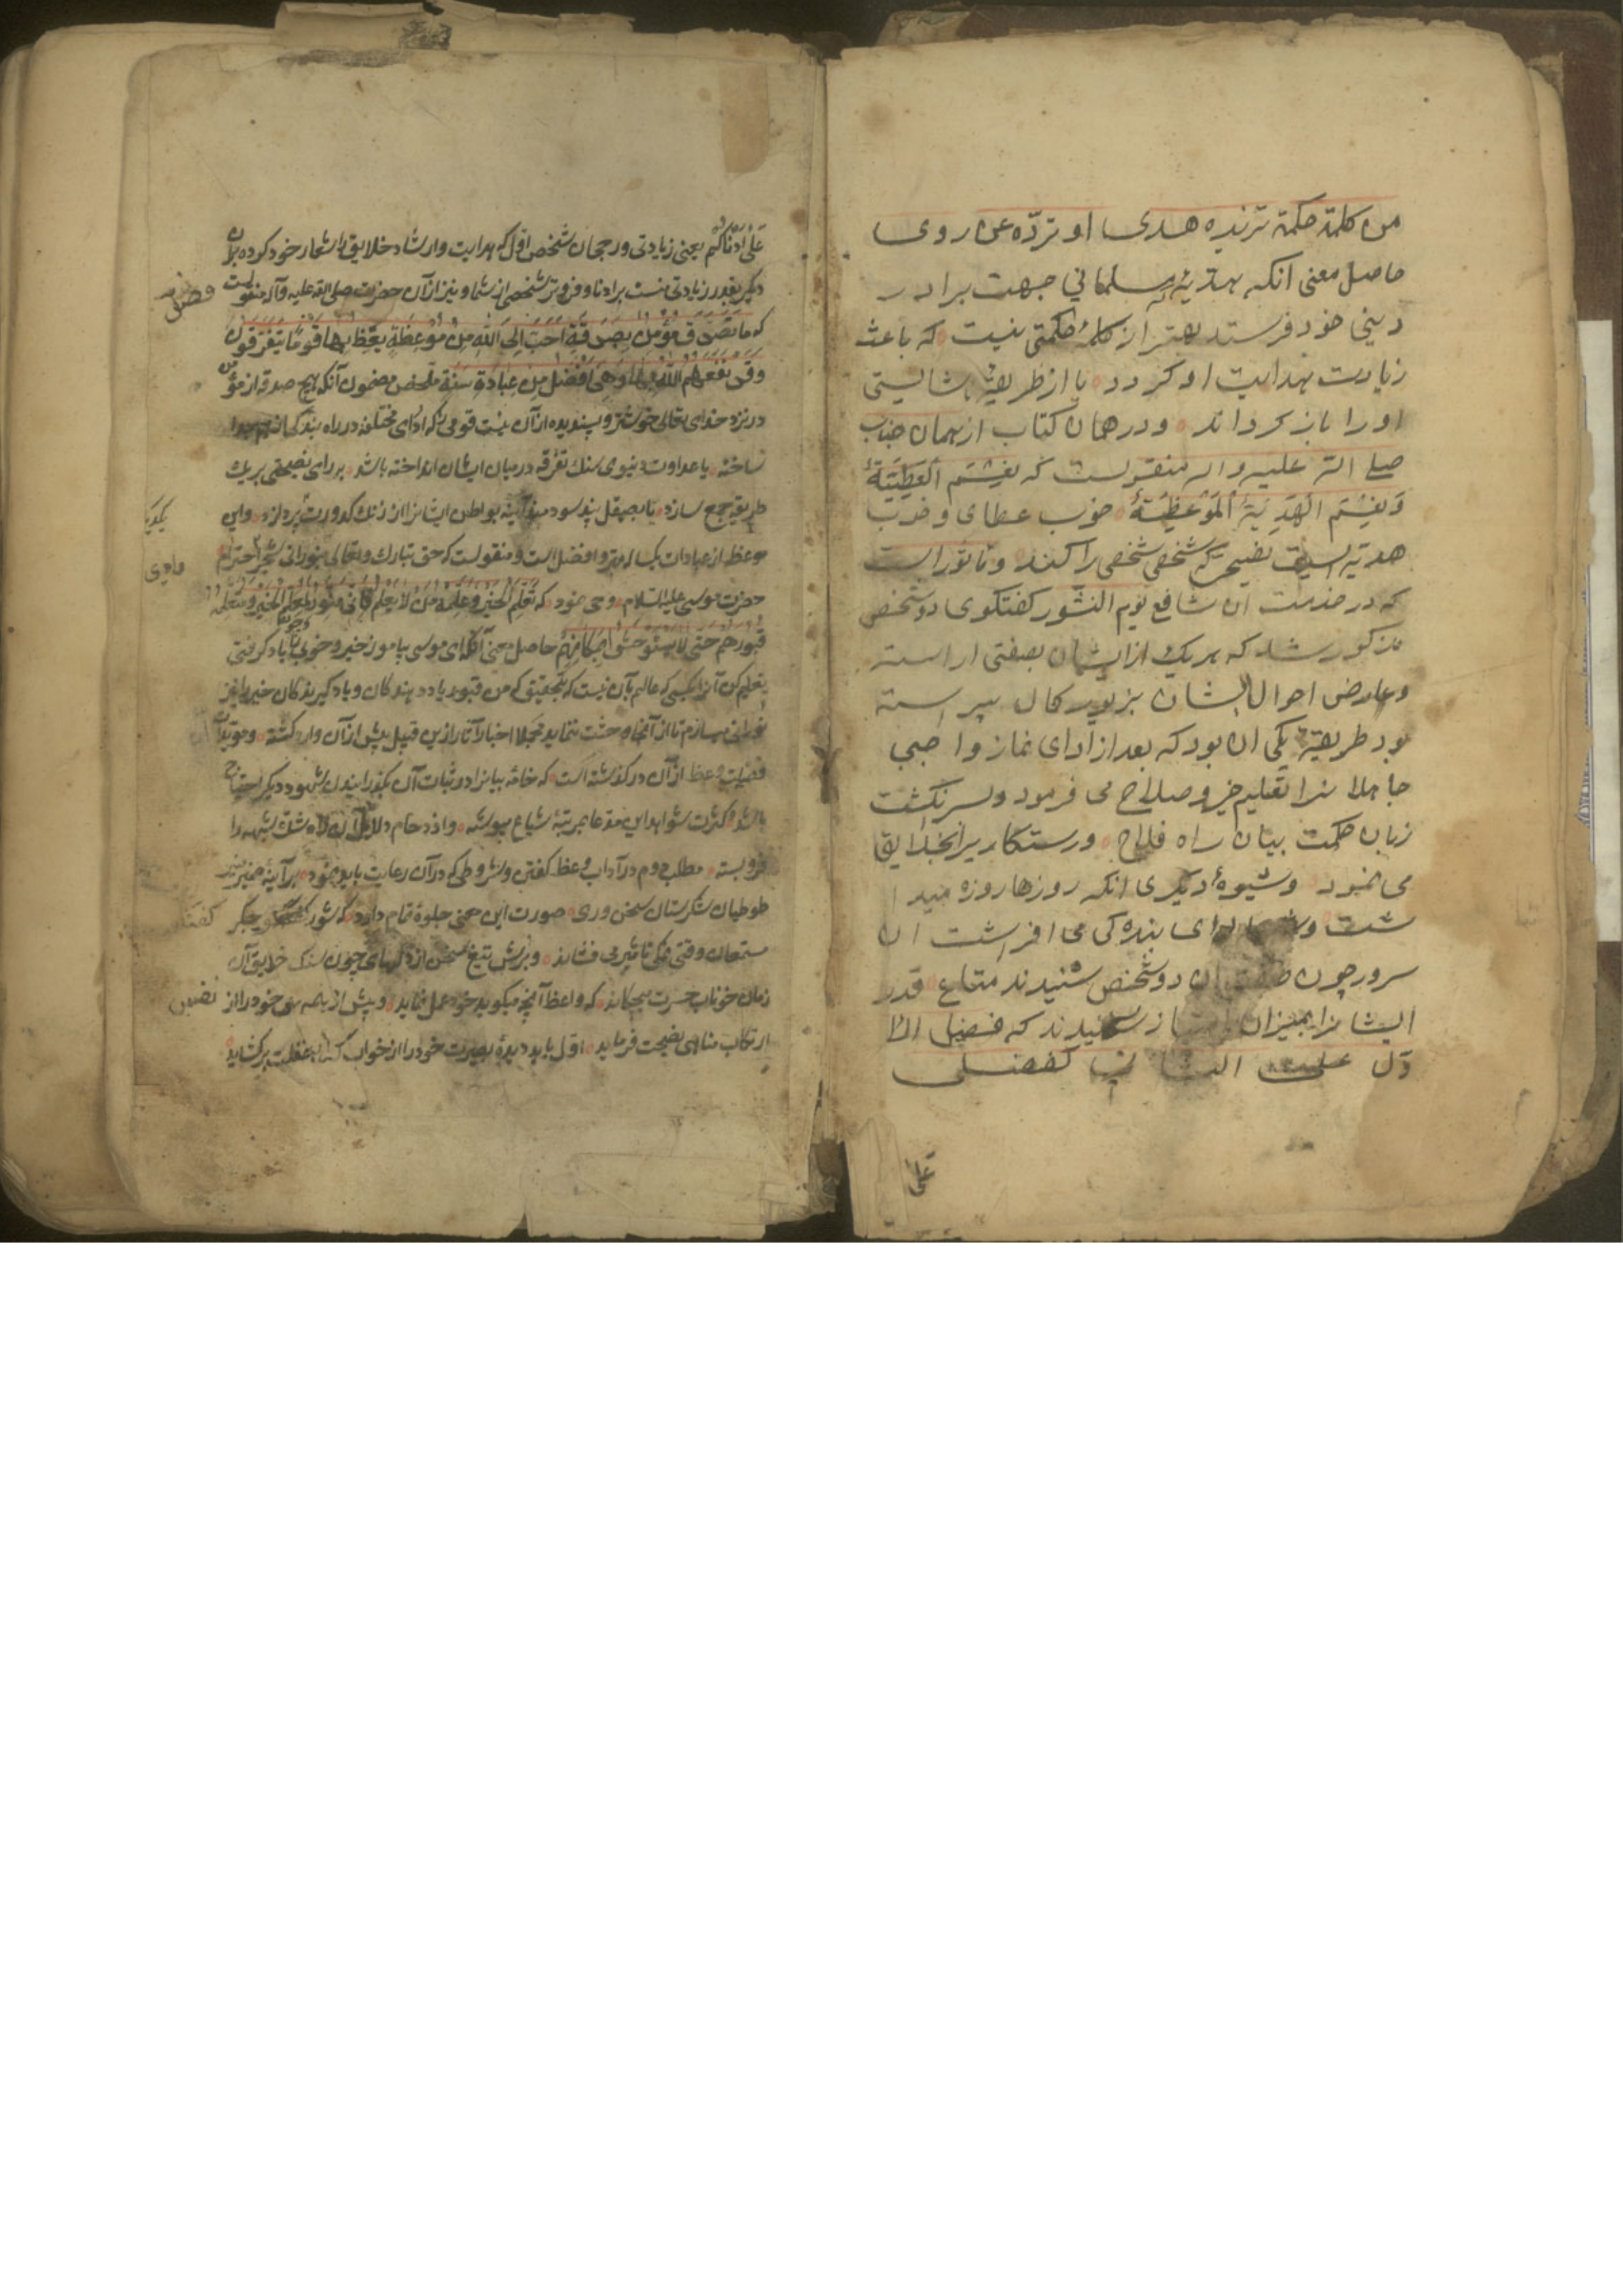 من کلمة حکمة تزیده هدی او تردّه عن روی
حاصل معنی انکه هدیهٔ مسلمانی جهت برادر
دینی خود فرستد بهتر از کلمهٔ حکمتی نیست که باعث
زیادت هدایت او کردد یا از طریقهٔ ناشایستی
او را باز کرداند ودر همان کتاب از همان جناب
صلی الله علیه واله منقولست که نعشتم العطیّة
ونعشتم الهدیّة الموعظة خوب عطای وخوب
هدیه ایست نصیحتی که شخصی شخصی را کند وماثور است
که در خدمت ان شافع یوم النشور کفتکوی دو شخص
مذکور شد که هر یک از ایشان بصفتی اراسته
وعارض احوال ایشان بزیور کمال پیراسته
بود طریقهٔ یکی ان بود که بعد از ادای نماز واجبی
جاهلانرا تعلیم خیر وصلاح می فرمود وسرنکشت
زبان حکمت بیان راه فلاح ورستکاریرا بخلایق
می نمود وشیوهٔ دیکری انکه روزها روزه میدا
شت و لوای بندکی می افراشت ان
سرور چون صفت ان دو شخص شنیدند متاع قدر
ایشانرا بمیزان امتیاز سنجیدند که فضل الا
وّل علی الثانی کفضلی
علی
علی ادناکم یعنی زیادتی ورجحان شخص اوّل که هدایت وارشاد خلایق را شعار خود کرده بران
دیکر بقدر زیادتی منست بر ادنا وفروتر شخصی از شما ونیز از آن حضرت صلی الله علیه وآله منقولست
که ما تصدق مؤمن بصدقة احب الی الله من موعظة یعظ بها قوما یتفرقون
وقد نفعهم الله بها وهی افضل من عبادة سنة ملخص مضمون آنکه هیچ صدقه از مؤمن
در نزد خدای تعالی خوشتر وپسندیده از آن نیست قومی را که اداهای مختلفه در راه بندکی از هم جدا
ساخته یا عداوت دنیوی سنک تفرقه در میان ایشان انداخته باشد برای نصیحتی بر یک
طریقه جمع سازد یا بصیقل پند سودمند آینه بواطن ایشانرا از زنک کدورت بپردازد واین
موعظه از عبادات یکساله بهتر وافضل است ومنقولست که حق تبارک وتعالی
حضرت موسی علیه السلام وحی نمود که تعلم الخیر وعلمه من لا یعلم فانی منور لمعلم الخیر ومتعلمه
قبورهم حتی لا یستوحشوا بمکانهم حاصل معنی آنکه ای موسی بیاموز خیر وخوبی را ویاد کرفتی
تعلیم کن آنرا بکسی که عالم بآن نیست که بتحقیق که من قبور یاد دهندکان ویاد کیرندکان خیر را نیز
نورانی میسازم تا از آنجا وحشت ننمایند مجملا اخبار وآثار ازین قبیل پیش از آن وارد کشته
فضیلت وعظ از آن در کذشته است که خامه بیانرا در ثبات آن بکذرانیدن شهود دیکر احتیاج
باشد وکثرت شواهد این مدعا بمرتبهٔ شیاع پیوسته واز ازدحام دلایل آن راه شک وشبهه را
فرو بسته مطلب دوم در آداب وعظ کفتن وشروطی که در آن رعایت باید نمود بر آینهٔ ضمیر
طوطیان شکرستان سخن وری صورت این معنی جلوهٔ تمام دارد که شور بجکر
مستمعان وقتی نمکی تاثیر می فشاند وبرش تیغ سخن از دلهای چون سنک خلایق آن
زمان خوناب حسرت میچکاند که واعظ آنچه میکوید خود عمل نماید وپیش از همه کس خود را از
ارتکاب مناهی نصیحت فرماید اوّل باید دیدهٔ بصیرت خود را از خواب غفلت برکشاید
نفس